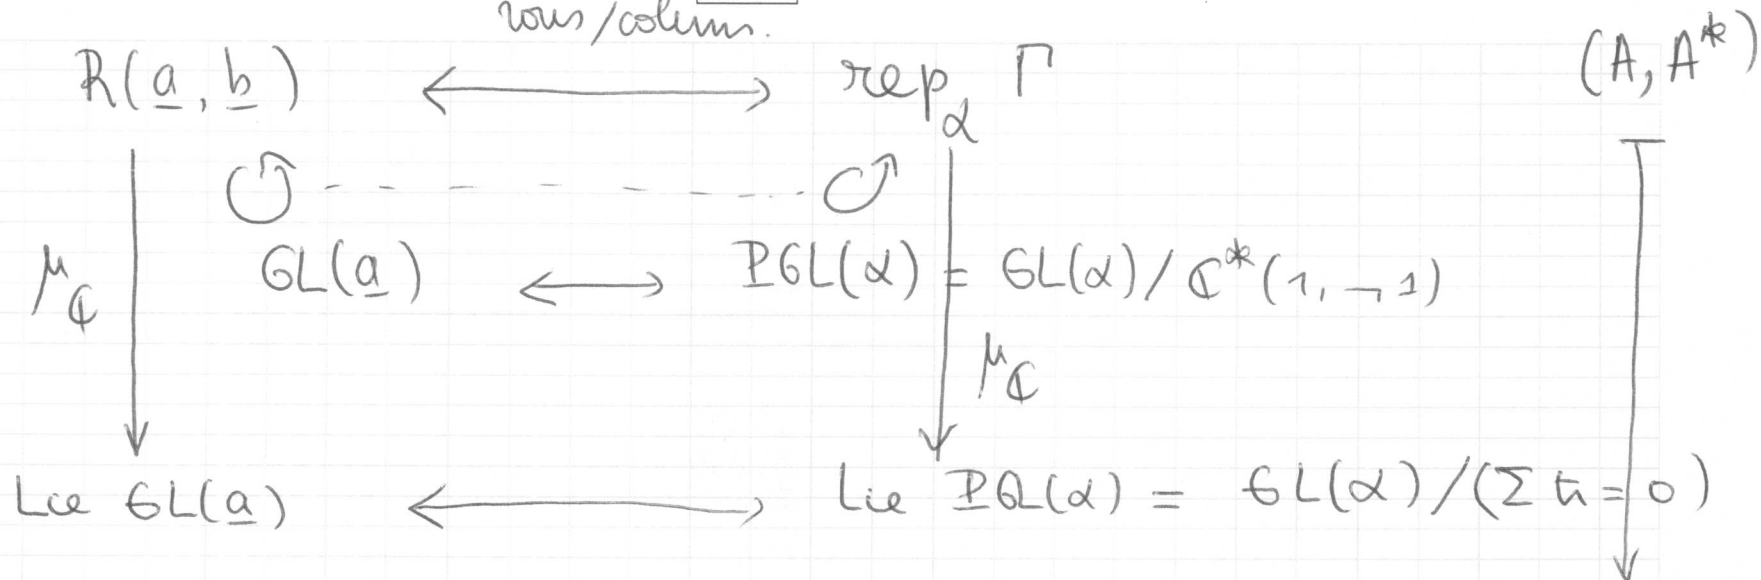 rows/colums.
R(a, b) ⟷ rep_α Γ (A, A*)
GL(a) ⟷ PGL(α) = GL(α)/ℂ*(1, ¬ 1)
μ_ℂ
μ_ℂ
Lie GL(a) ⟷ Lie PGL(α) = GL(α)/(Σ tr = 0)